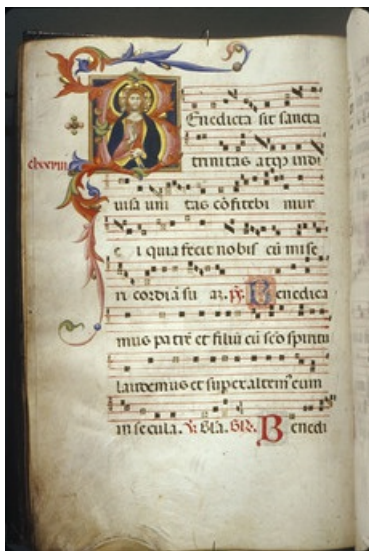 Benedicta sit sancta
trinitas atq₃ indi
uisa uni tas cōfitebi mur
e i quia fecit nobis cū mise
ri cordiā su aʒ. ps. Benedica
mus patrē et filiū cū sc̄o spiritu
laudemus et superaltem⁹ eum
in secula. V. Gl̄a. Benedi